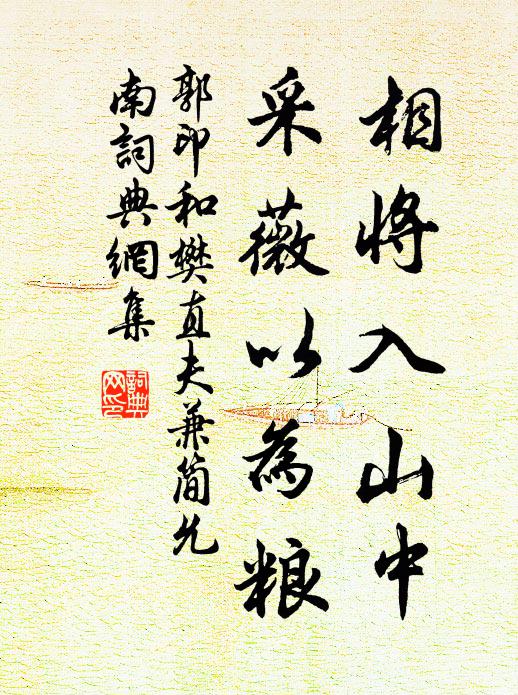 相将入山中
采薇以為粮
郭印和樊直夫兼简允
南詞典網集
詞典
网印